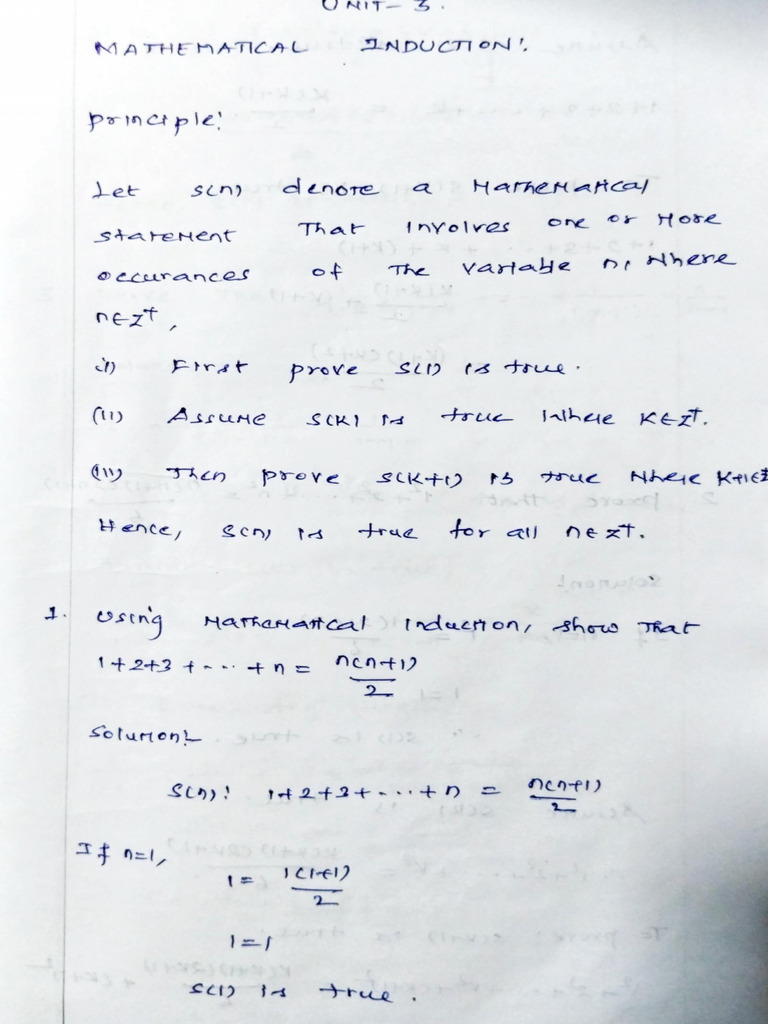 UNIT-3.
MATHEMATICAL INDUCTION:
Principle:
Let S(n) denote a Mathematical
statement that involves one or more
occurances of the variable n, where
n∈Z⁺,
(i) First prove S(1) is true.
(ii) Assume S(k) is true where k∈Z⁺.
(iii) Then prove S(k+1) is true where k+1∈Z
Hence, S(n) is true for all n∈Z⁺.
1. Using Mathematical induction, show that
1+2+3+....+n = n(n+1)/2
Solution:
S(n): 1+2+3+....+n = n(n+1)/2
If n=1,
1 = 1(1+1)/2
1=1
S(1) is true.